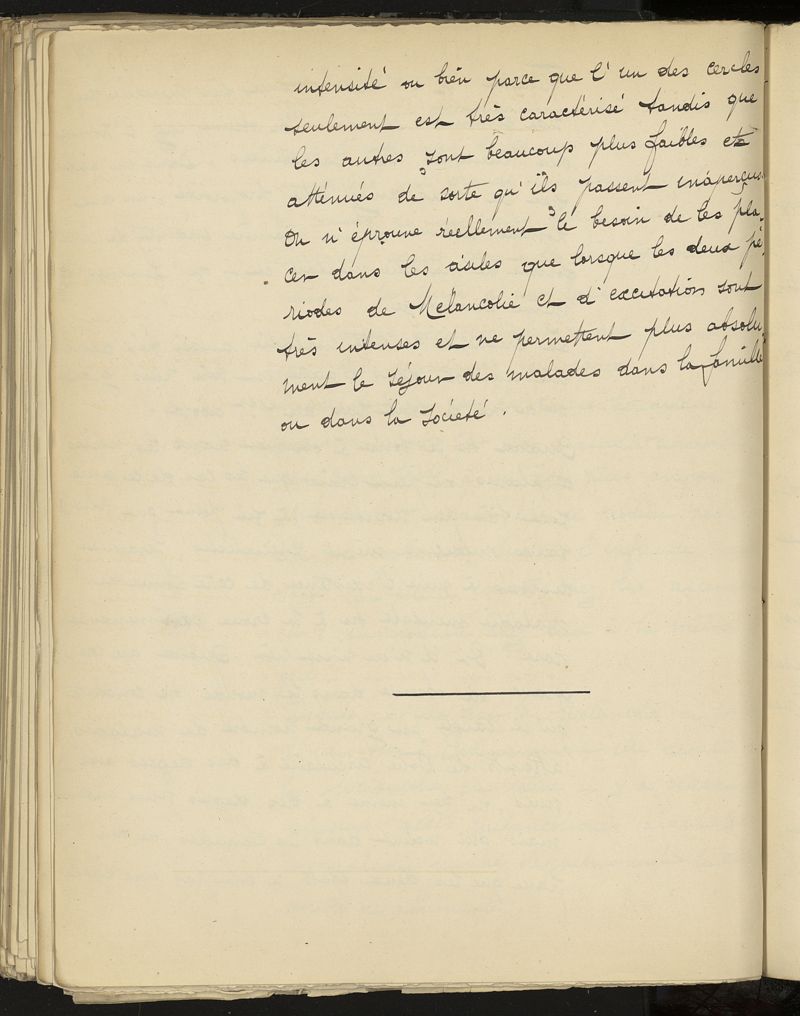 intensité ou bien parce que l'un des cercles
seulement est très caractérisé tandis que
les autres sont beaucoup plus faibles et
atténués de sorte qu'ils passent inaperçus.
On n'éprouve réellement le besoin de les pla-
cer dans les asiles que lorsque les deux pé-
riodes de Mélancolie et d'excitation sont
très intenses et ne permettent plus absolu-
ment le séjour des malades dans la famille
ou dans la société.